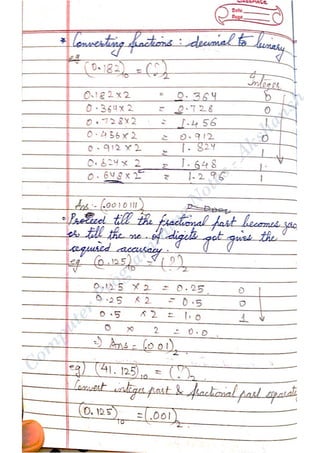 Date
Page
* Converting fractions : decimal to binary
eg
(0.182)10 = (?)2
Integer
0.182 x 2 = 0.364 0
0.364 x 2 = 0.728 0
0.728 x 2 = 1.456 1
0.456 x 2 = 0.912 0
0.912 x 2 = 1.824 1
0.824 x 2 = 1.648 1
0.648 x 2 = 1.296 1
Ans :- (.0010111)2
• Proceed till the fractional part becomes zero
or till the no. of digits got gives the
required accuracy.
eg (0.125)10 = (?)2
0.125 x 2 = 0.25 0
0.25 x 2 = 0.5 0
0.5 x 2 = 1.0 1
0 x 2 = 0.0
=) Ans = (.001)2
eg) (41.125)10 = (?)2
Convert integer part & fractional part separate
(0.125)10 = (.001)2